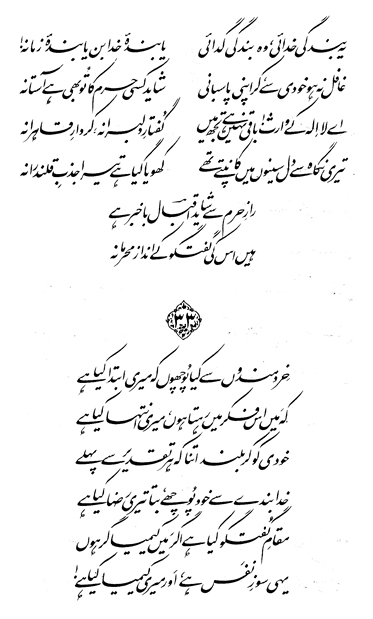 یہ بندگی خدائی، وہ بندگی گدائی یا بندۂ خدا بن یا بندۂ زمانہ!
غافل نہ ہو خودی سے کر اپنی پاسبانی شاید کسی حرم کا تُو بھی ہے آستانہ
اے لا اِلٰہ کے وارث! باقی نہیں ہے تجھ میں گفتارِ دلبرانہ، کردارِ قاہرانہ
تیری نگاہ سے دل سینوں میں کانپتے تھے کھویا گیا ہے تیرا جذبِ قلندرانہ
رازِ حرم سے شاید اقبالؔ باخبر ہے
ہیں اس کی گفتگو کے انداز محرمانہ
۳۳
خرد مندوں سے کیا پُوچھوں کہ میری ابتدا کیا ہے
کہ مَیں اس فکر میں رہتا ہوں، میری انتہا کیا ہے
خودی کو کر بلند اتنا کہ ہر تقدیر سے پہلے
خدا بندے سے خود پُوچھے، بتا تیری رضا کیا ہے
مقامِ گُفتگو کیا ہے اگر مَیں کیمیا گر ہوں
یہی سوزِ نفَس ہے، اور میری کیمیا کیا ہے!